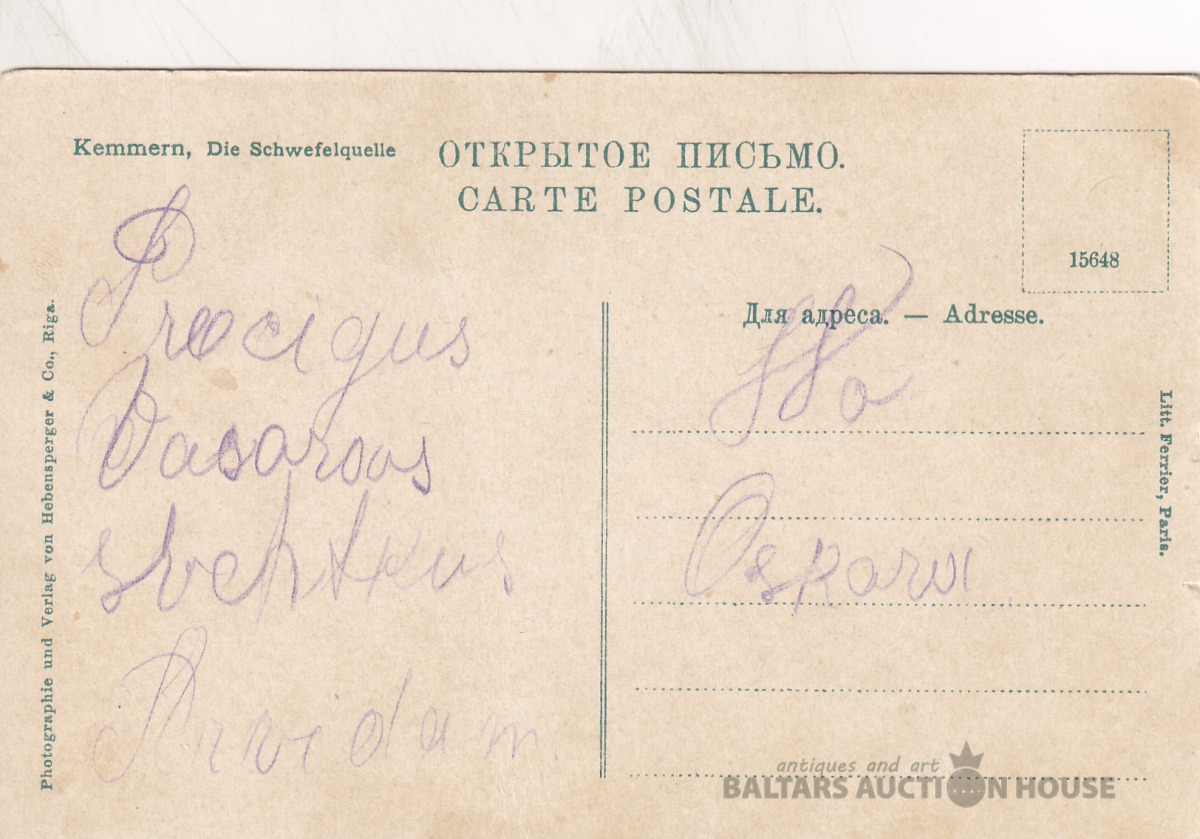 Kemmern, Die Schwefelquelle
ОТКРЫТОЕ ПИСЬМО.
CARTE POSTALE.
15648
Photographie und Verlag von Hebensperger & Co., Riga.
Preacigus
Vasaras
svehtkus
Arvidam
Для адреса. — Adresse.
No
Oskara
Litt. Ferrier, Paris.
antiques and art
BALTARS AUCTION HOUSE